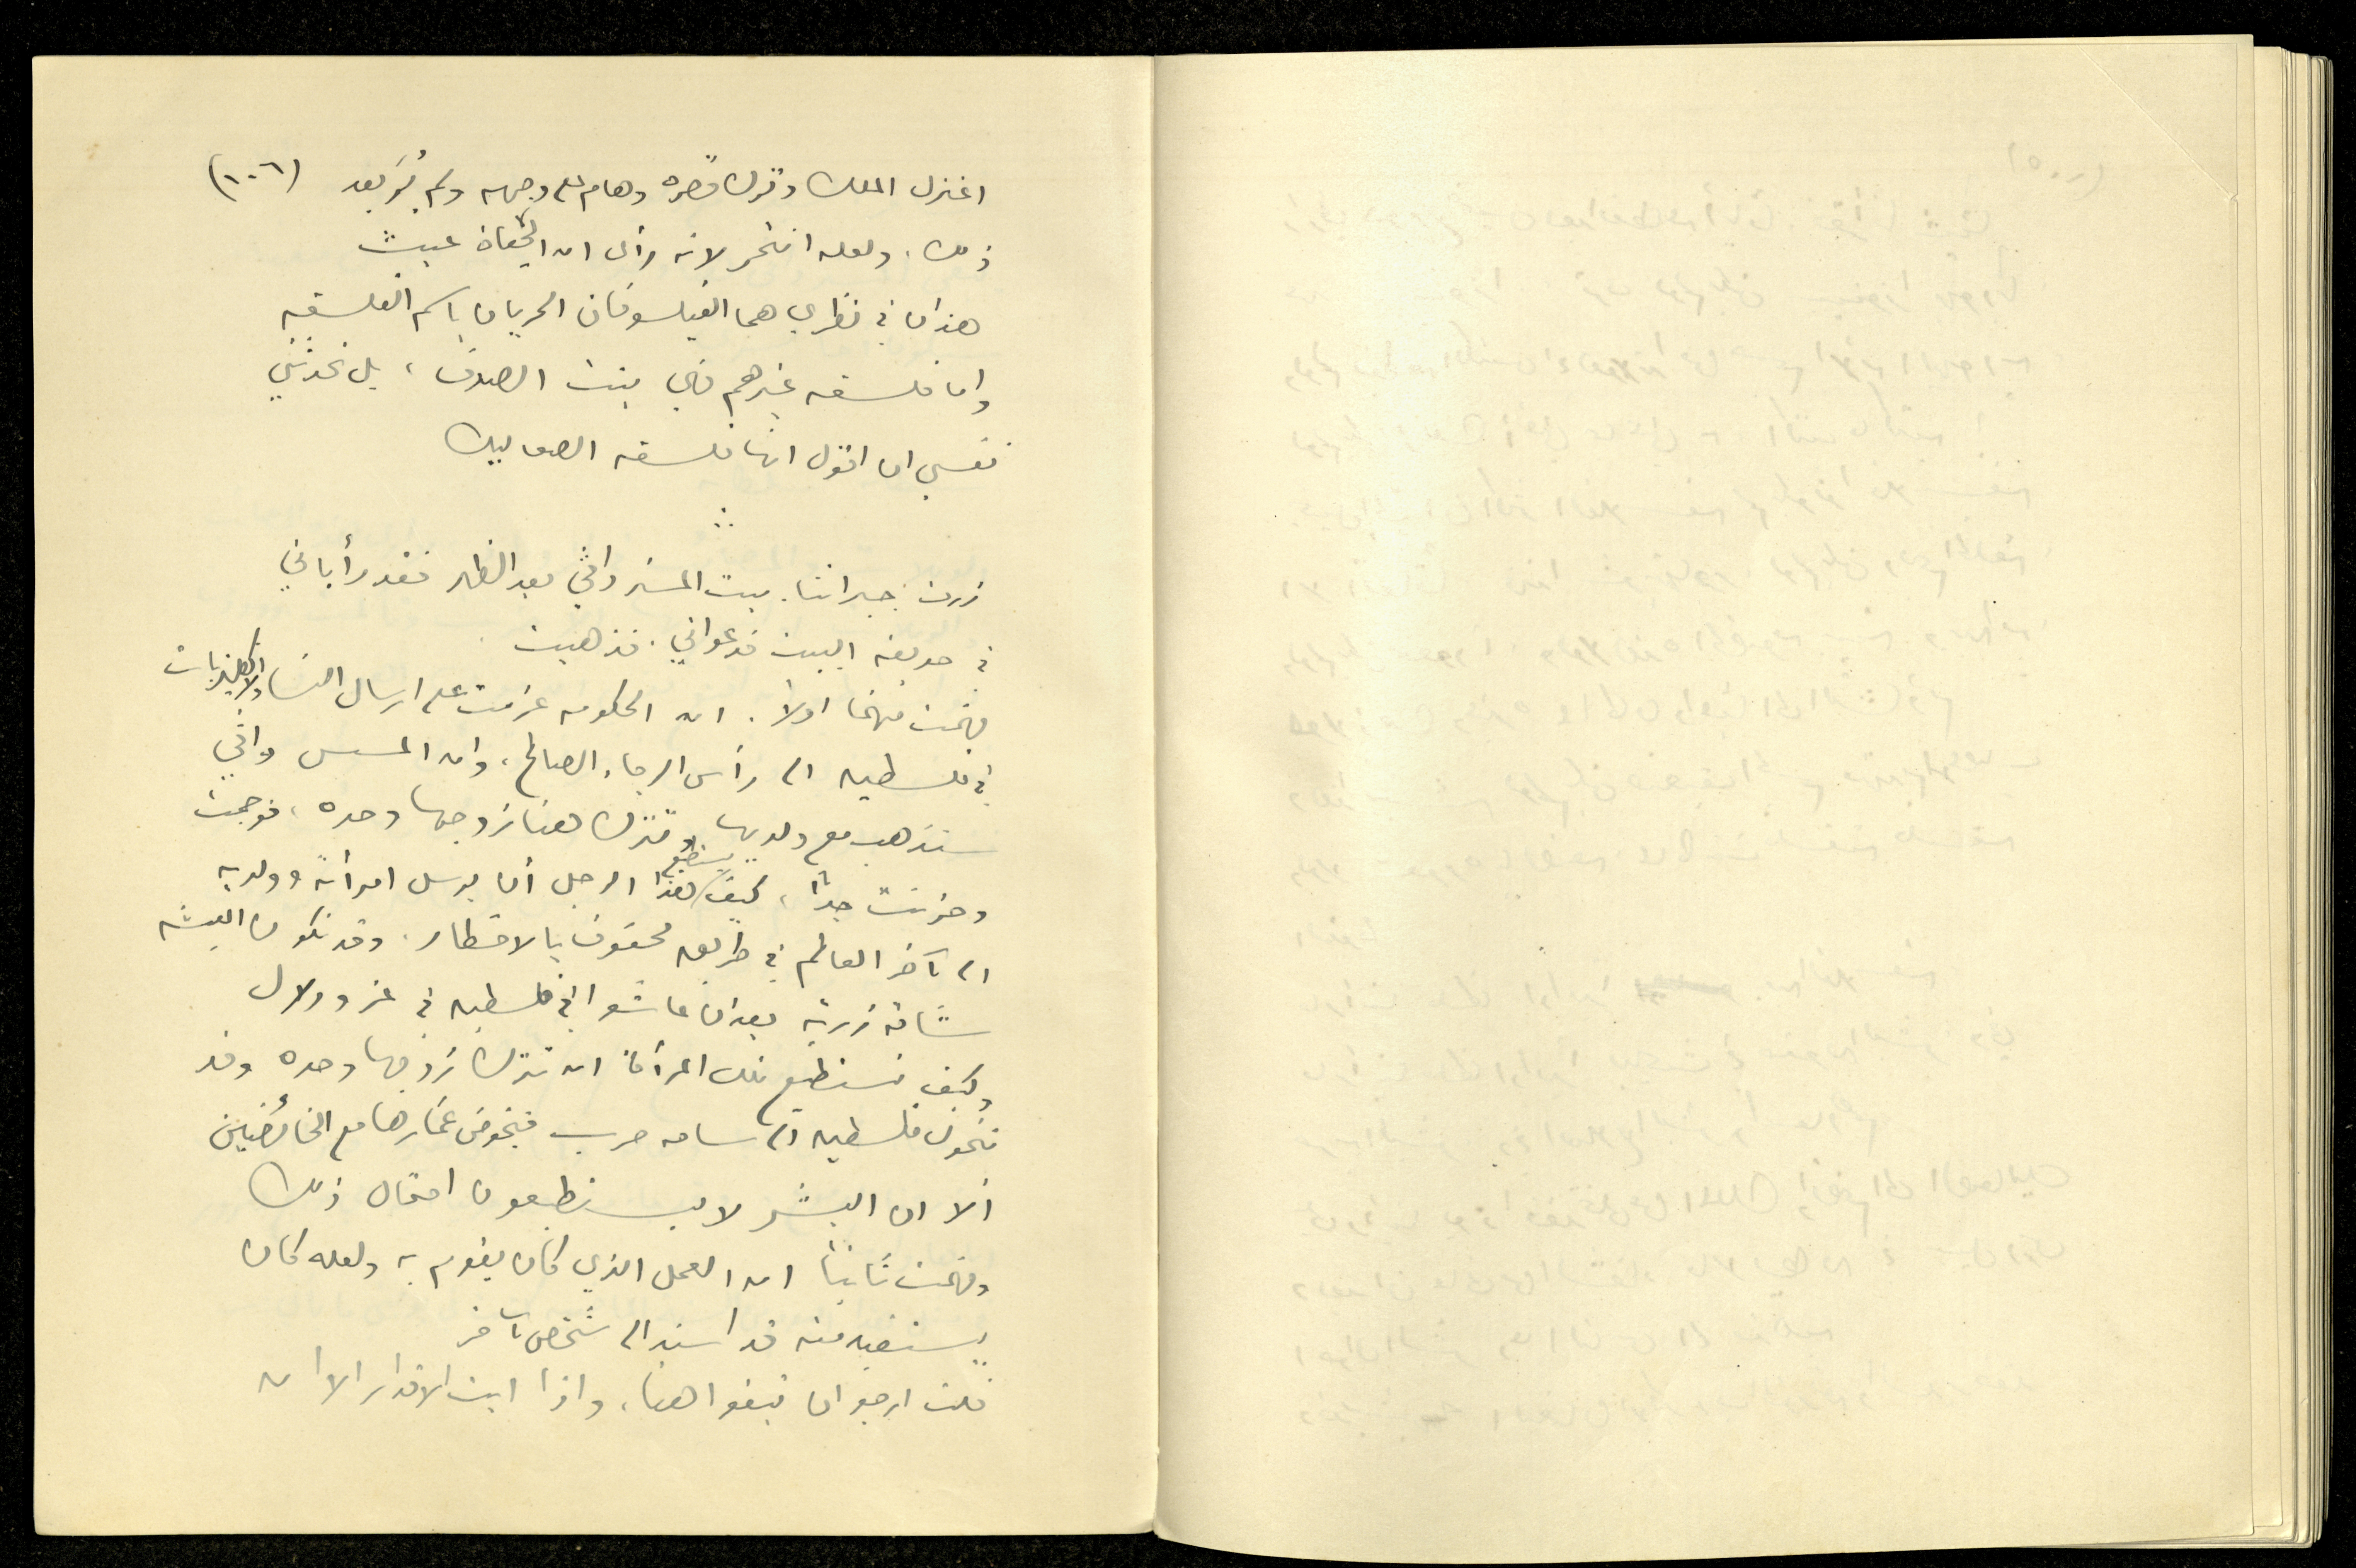 (١٠٦)
اعتزل الملك وترك قصره وهام على وجهه ولم يُرَ بعد
ذلك. ولعله انتحر لانه رأى ان الحياة عبث
هذان في نظري هما الفيلسوفان الحريان باسم الفلسفه
واما فلسفه غيرهم فهي بنت الصدف، بل تحدثني
نفسي ان اقول انها فلسفه الصعاليك
زرت جيراننا. بيت المستر واتي بعد الظهر فقد رأياني
في حديقه البيت فدعواني. فذهبت
فهمت منهما اولاً. ان الحكومه عزمت على ارسال النساء والاولاد الانكليزيات
في فلسطين الى رأس الرجاء الصالح، وان المسس واتي
ستذهب مع ولديها وتترك هنا زوجها وحده، فوجمت
وحزنت جداً، كيف يستطيع هذا الرجل أن يرسل امرأته وولديه
الى آخر العالم في طريق محفوف بالاخطار. وقد تكون العيشه
شاقه زريه بعد ان عاشوا في فلسطين في عز ودلال
وكيف تستطيع تلك المرأة ان تترك زوجها وحده وقد
تتحول فلسطين الى ساحه حرب فيخوض غمارها مع الخائضين
ألا ان البشر لا يستطيعون احتمال ذلك
وفهمت ثانياً ان العمل الذي كان يقوم به ولعله كان
يستفيد منه قد اسند الى شخص آخر
قلت ارجو ان تبقوا هنا، واذا ابت الاقدار الا ان